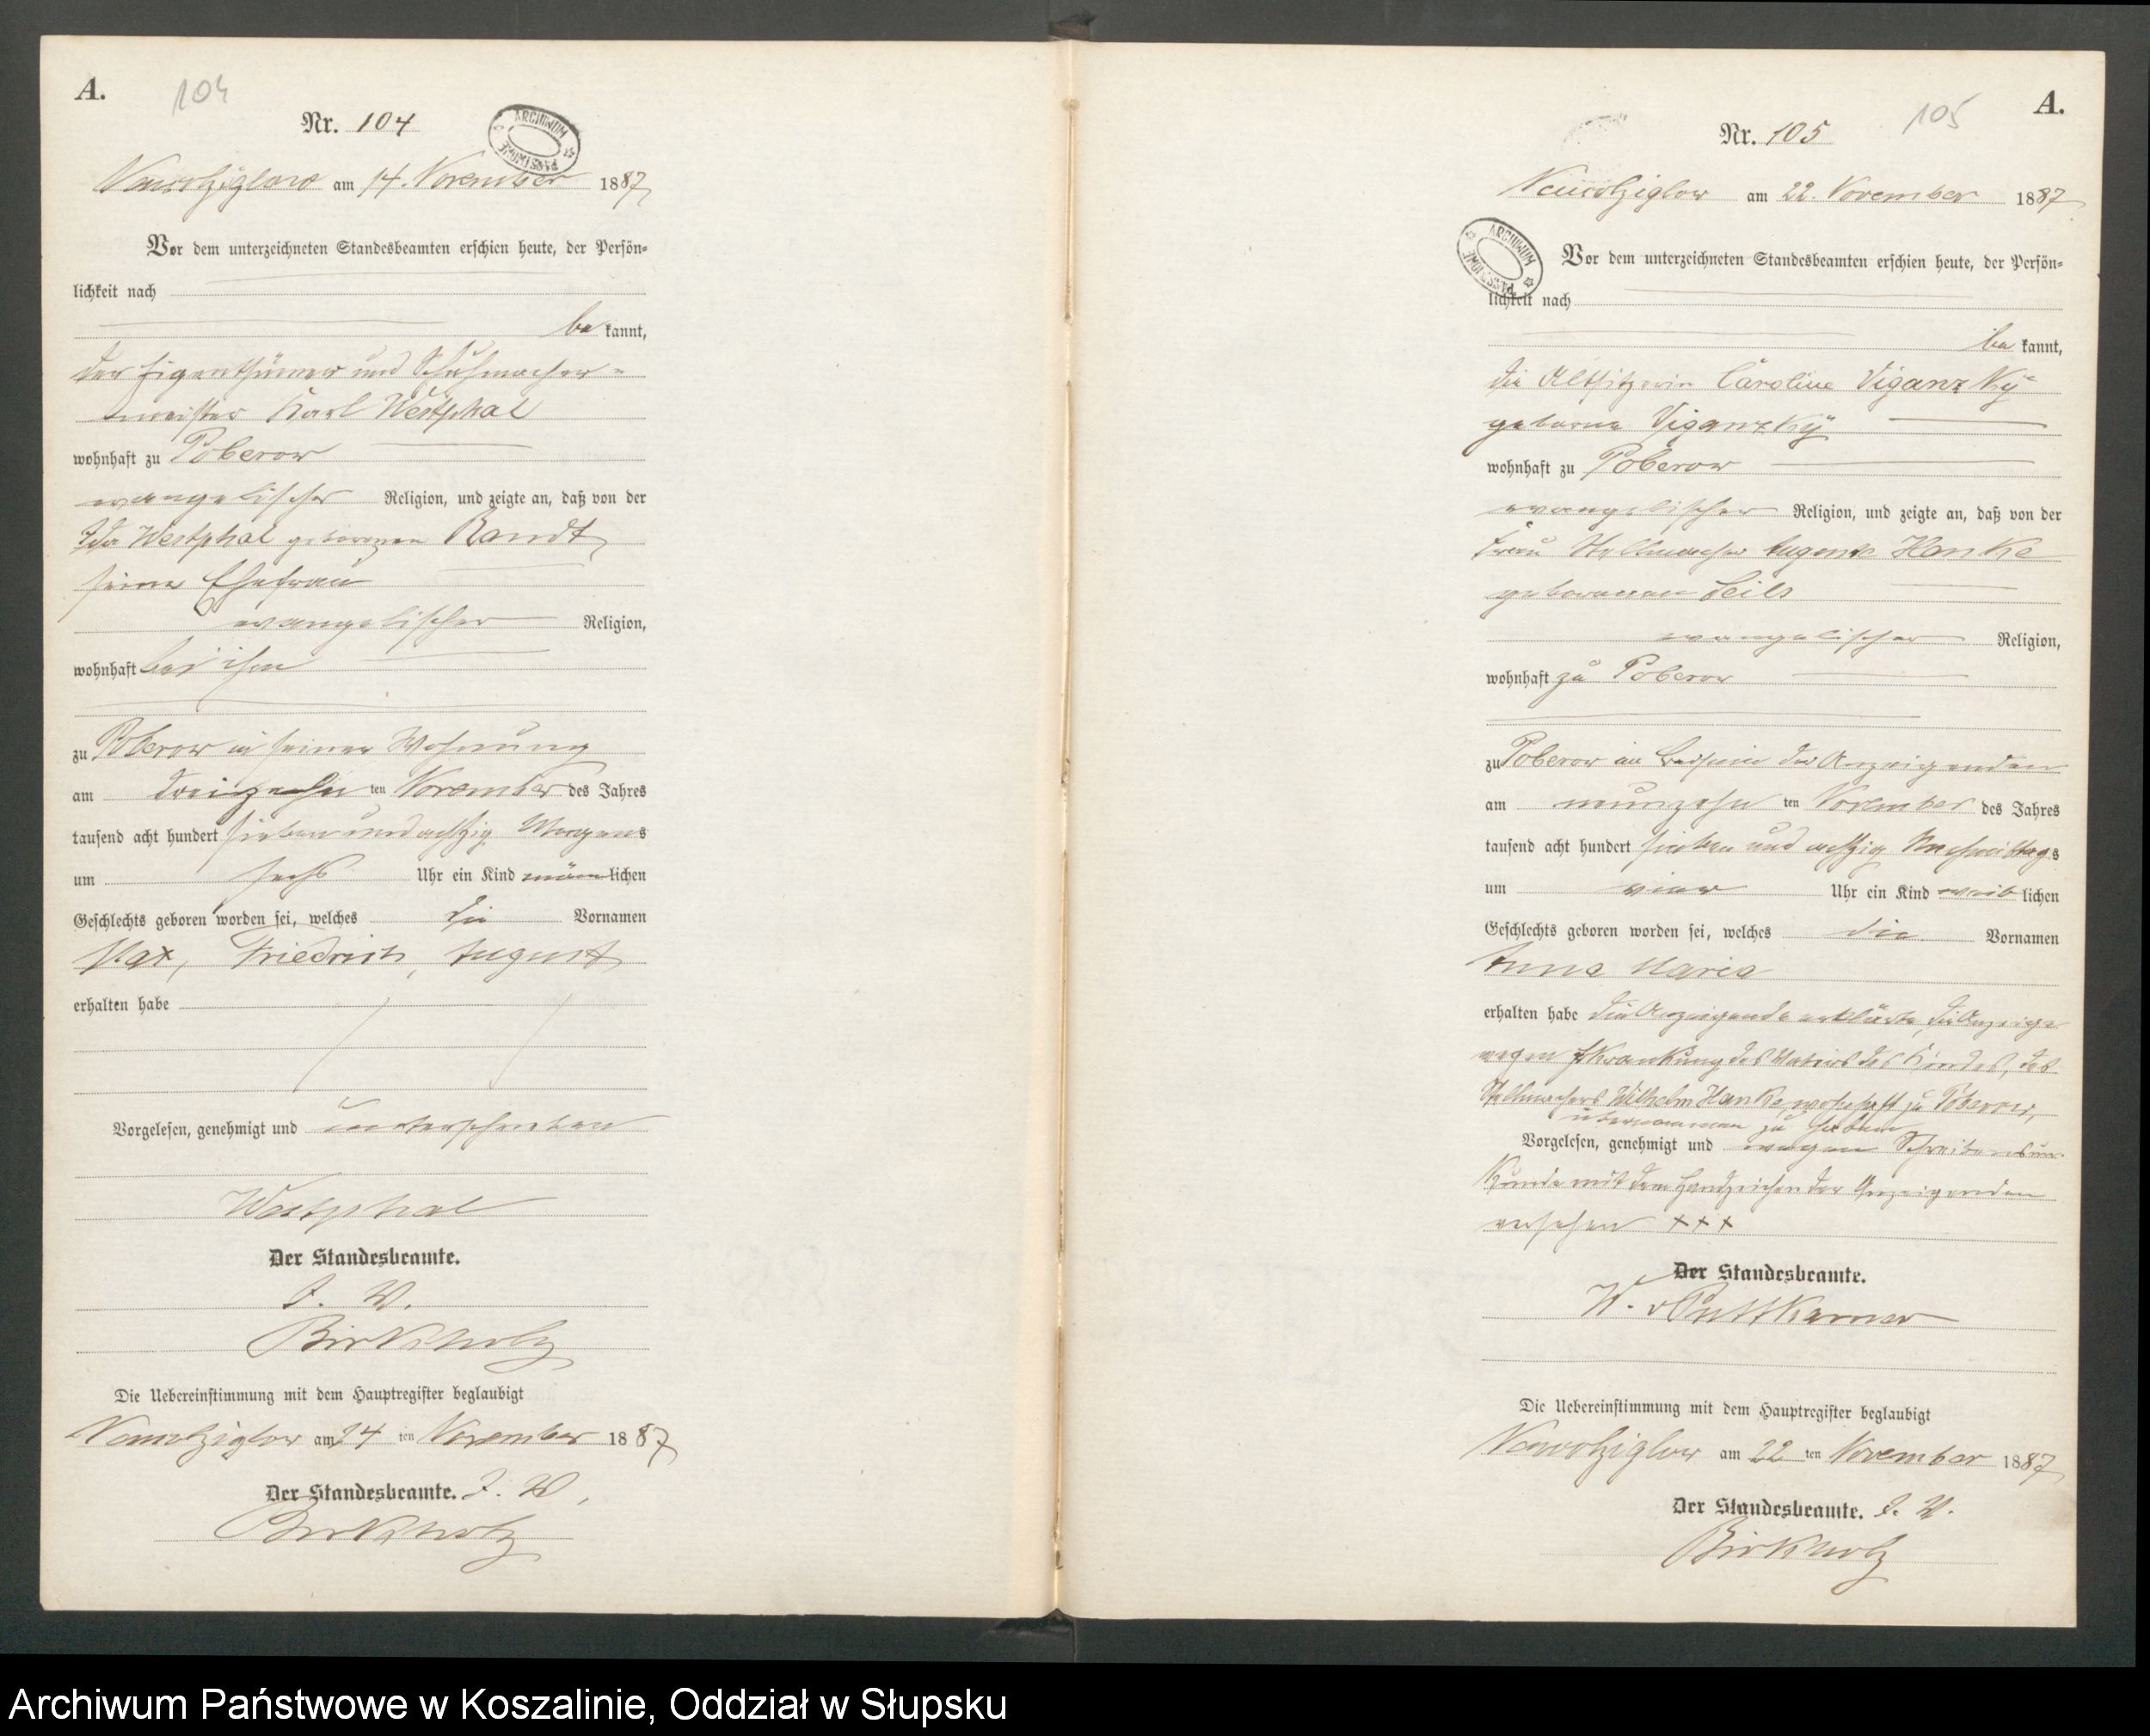 A.
104
Nr. 104
ARCHIWUM PAŃSTWOWE
Neuwolziglow am 14. November 1887
Vor dem unterzeichneten Standesbeamten erschien heute, der Persön-
lichkeit nach
be kannt,
der Eigenthümer und Schuhmacher-
meister Karl Westphal
wohnhaft zu Poberow
evangelischer Religion, und zeigte an, daß von der
Ida Westphal geborenen Randt
seine Ehefrau
evangelischer Religion,
wohnhaft bei ihm
zu Poberow in seiner Wohnung
am dreizehn ten November des Jahres
tausend acht hundert sieben und achtzig Morgens
um sechs Uhr ein Kind männlichen
Geschlechts geboren worden sei, welches die Vornamen
Max, Friedrich, August
erhalten habe
Vorgelesen, genehmigt und unterschrieben
Westphal
Der Standesbeamte.
I. V.
Birkholz
Die Uebereinstimmung mit dem Hauptregister beglaubigt
Neuwolziglow am 14 ten November 1887
Der Standesbeamte. I. V.
Birkholz
A.
105
Nr. 105
Neuwolziglow am 22. November 1887
ARCHIWUM PAŃSTWOWE
Vor dem unterzeichneten Standesbeamten erschien heute, der Persön-
lichkeit nach
be kannt,
die Altsitzerin Caroline Viganzky
geborne Viganzky
wohnhaft zu Poberow
evangelischer Religion, und zeigte an, daß von der
Frau Stellmacher Auguste Hanke
geborenen Beils
evangelischer Religion,
wohnhaft zu Poberow
zu Poberow im Beisein der Anzeigenden
am neunzehn ten November des Jahres
tausend acht hundert sieben und achtzig Nachmittags
um vier Uhr ein Kind weiblichen
Geschlechts geboren worden sei, welches die Vornamen
Anna Maria
erhalten habe die Anzeigende erklärte, die Anzeige
wegen Erkrankung des Vaters des Kindes, des
Stellmachers Wilhelm Hanke, wohnhaft zu Poberow,
übernommen zu haben
Vorgelesen, genehmigt und wegen Schreibensun-
kunde mit dem Handzeichen der Anzeigenden
versehen +++
Der Standesbeamte.
W. v Puttkamer
Die Uebereinstimmung mit dem Hauptregister beglaubigt
Neuwolziglow am 22 ten November 1887
Der Standesbeamte. I. V.
Birkholz
Archiwum Państwowe w Koszalinie, Oddział w Słupsku